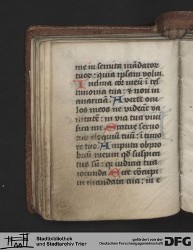 me in semita mandator
tuor: quia ipsam volui
Inclina cor meum i tes
timonia tua: et non in
avariciā: Averte ocu
los meos ne videāt va
nitatē: in via tua vivi
fica me Statue servo
tuo eloquiū tuū: i timo
re tuo Amputa oppro
briū meum qd suspica
tus sū: qr iudicia tua
iocunda Ecce concupi
in mandata tua: in e
Stadtbibliothek
und Stadtarchiv Trier
gefördert von der
Deutschen Forschungsgemeinschaft
DFG